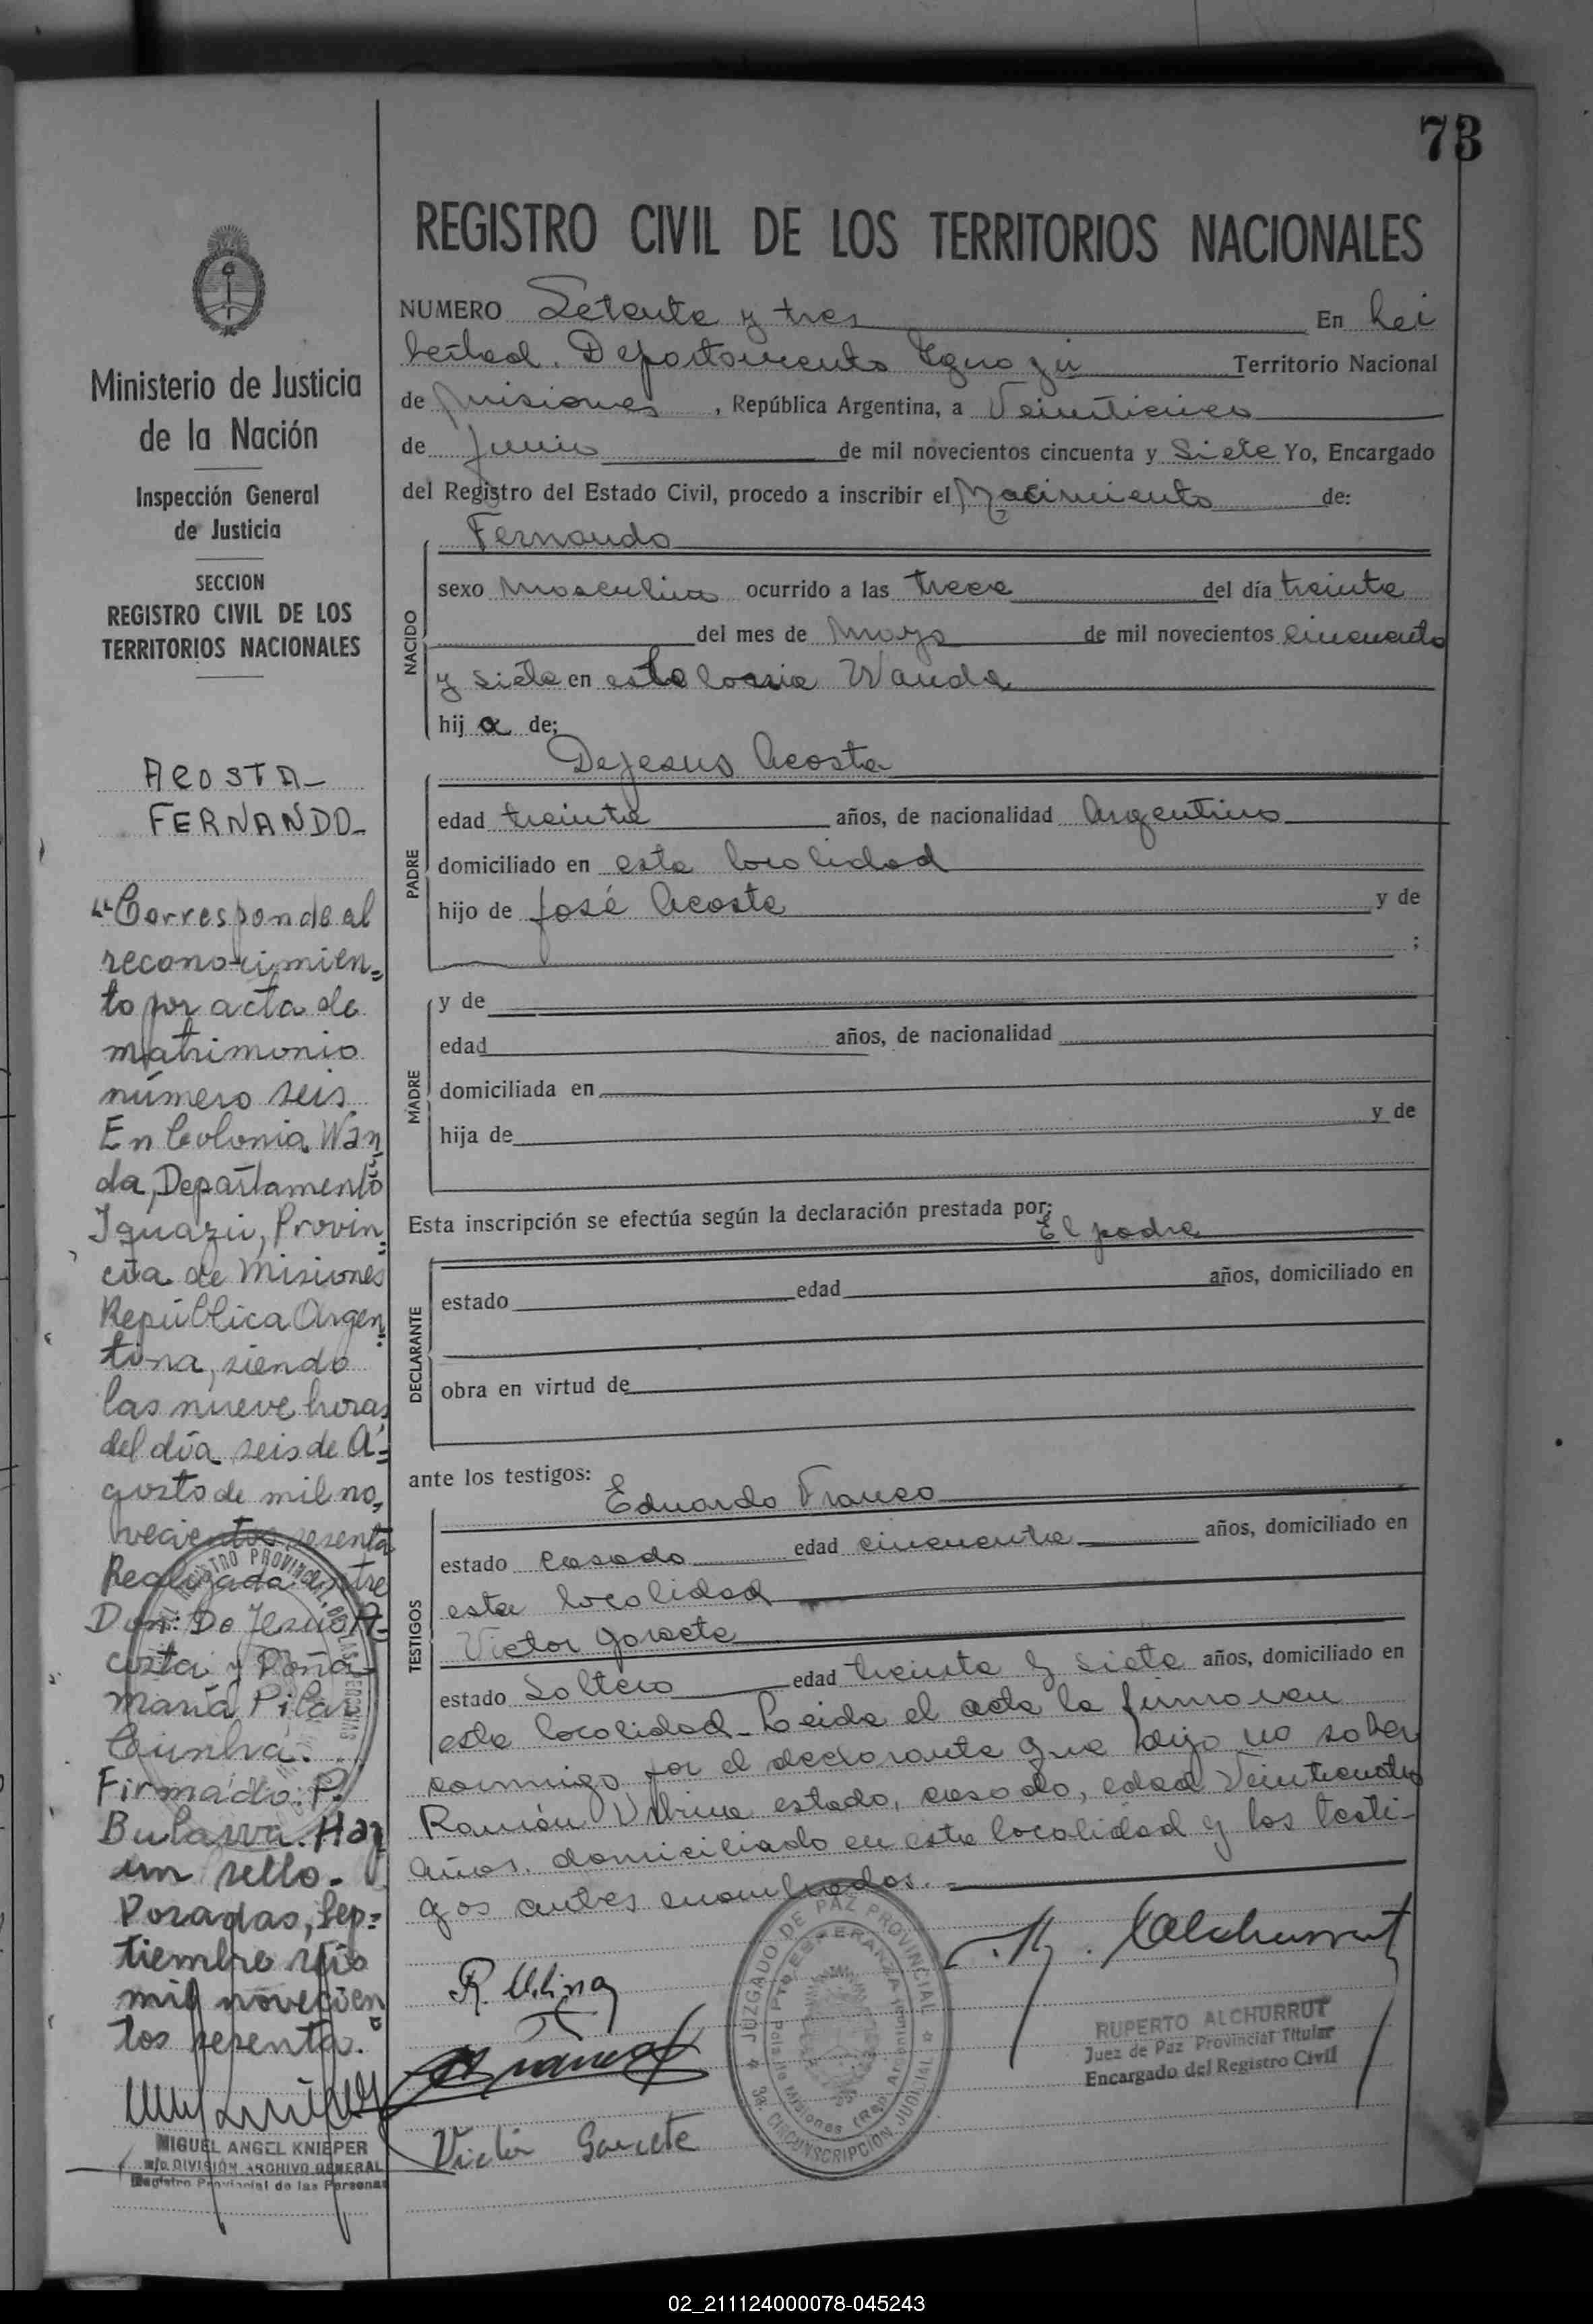 73
REGISTRO CIVIL DE LOS TERRITORIOS NACIONALES
NUMERO Setenta y tres En Lei
bertad. Departamento Iguazú Territorio Nacional
de Misiones, República Argentina, a Veinticinco
de Junio de mil novecientos cincuenta y Siete Yo, Encargado
del Registro del Estado Civil, procedo a inscribir el Nacimiento de:
NACIDO
Fernando
sexo Masculino ocurrido a las trece del día treinta
del mes de Mayo de mil novecientos cincuenta
y siete en esta Wanda
hij o de;
PADRE
Dejesus Acosta
edad treinta años, de nacionalidad Argentino
domiciliado en esta localidad
hijo de José Acosta y de
;
MADRE
y de
edad años, de nacionalidad
domiciliada en
hija de y de
Esta inscripción se efectúa según la declaración prestada por:
El padre
DECLARANTE
estado edad años, domiciliado en
obra en virtud de
ante los testigos:
TESTIGOS
Eduardo Franco
estado casado edad cincuenta años, domiciliado en
esta localidad
Victor Garcete
estado Soltero edad treinta y siete años, domiciliado en
esta localidad - Leida el acta la firmaron
conmigo por el declarante que dijo no saber
Ramón estado, casado, edad Veinticuatro
años. domiciliado en esta localidad y los testi-
gos antes nombrados. =
Victor Garcete
JUZGADO DE PAZ PROVINCIAL
Pto ESPERANZA
Pcia. de Misiones (Rep. Argentina)
3a. CIRCUNSCRIPCION JUDICIAL
RUPERTO ALCHURRUT
Juez de Paz Provincial Titular
Encargado del Registro Civil
Ministerio de Justicia
de la Nación
Inspección General
de Justicia
SECCION
REGISTRO CIVIL DE LOS
TERRITORIOS NACIONALES
ACOSTA-
FERNANDO-
"Corresponde al
reconocimien=
to por acta de
matrimonio
número seis.
En Colonia Wan
da, Departamento
Iguazú, Provin
cia de Misiones
República Argen
tina, siendo
las nueve horas
del día seis de A=
gosto de mil no,
vecientos sesenta
Realizada entre
Don: De Jesus A-
costa y Doña
María Pilar
Cunha.
Firmado: P.
Bulawa. Hay
un sello.
Posadas, Sep=
tiembre seis
mil novecien
tos sesenta.
MIGUEL ANGEL KNIEPER
DIVISIÓN ARCHIVO GENERAL
Registro Provincial de las Personas
02_211124000078-045243